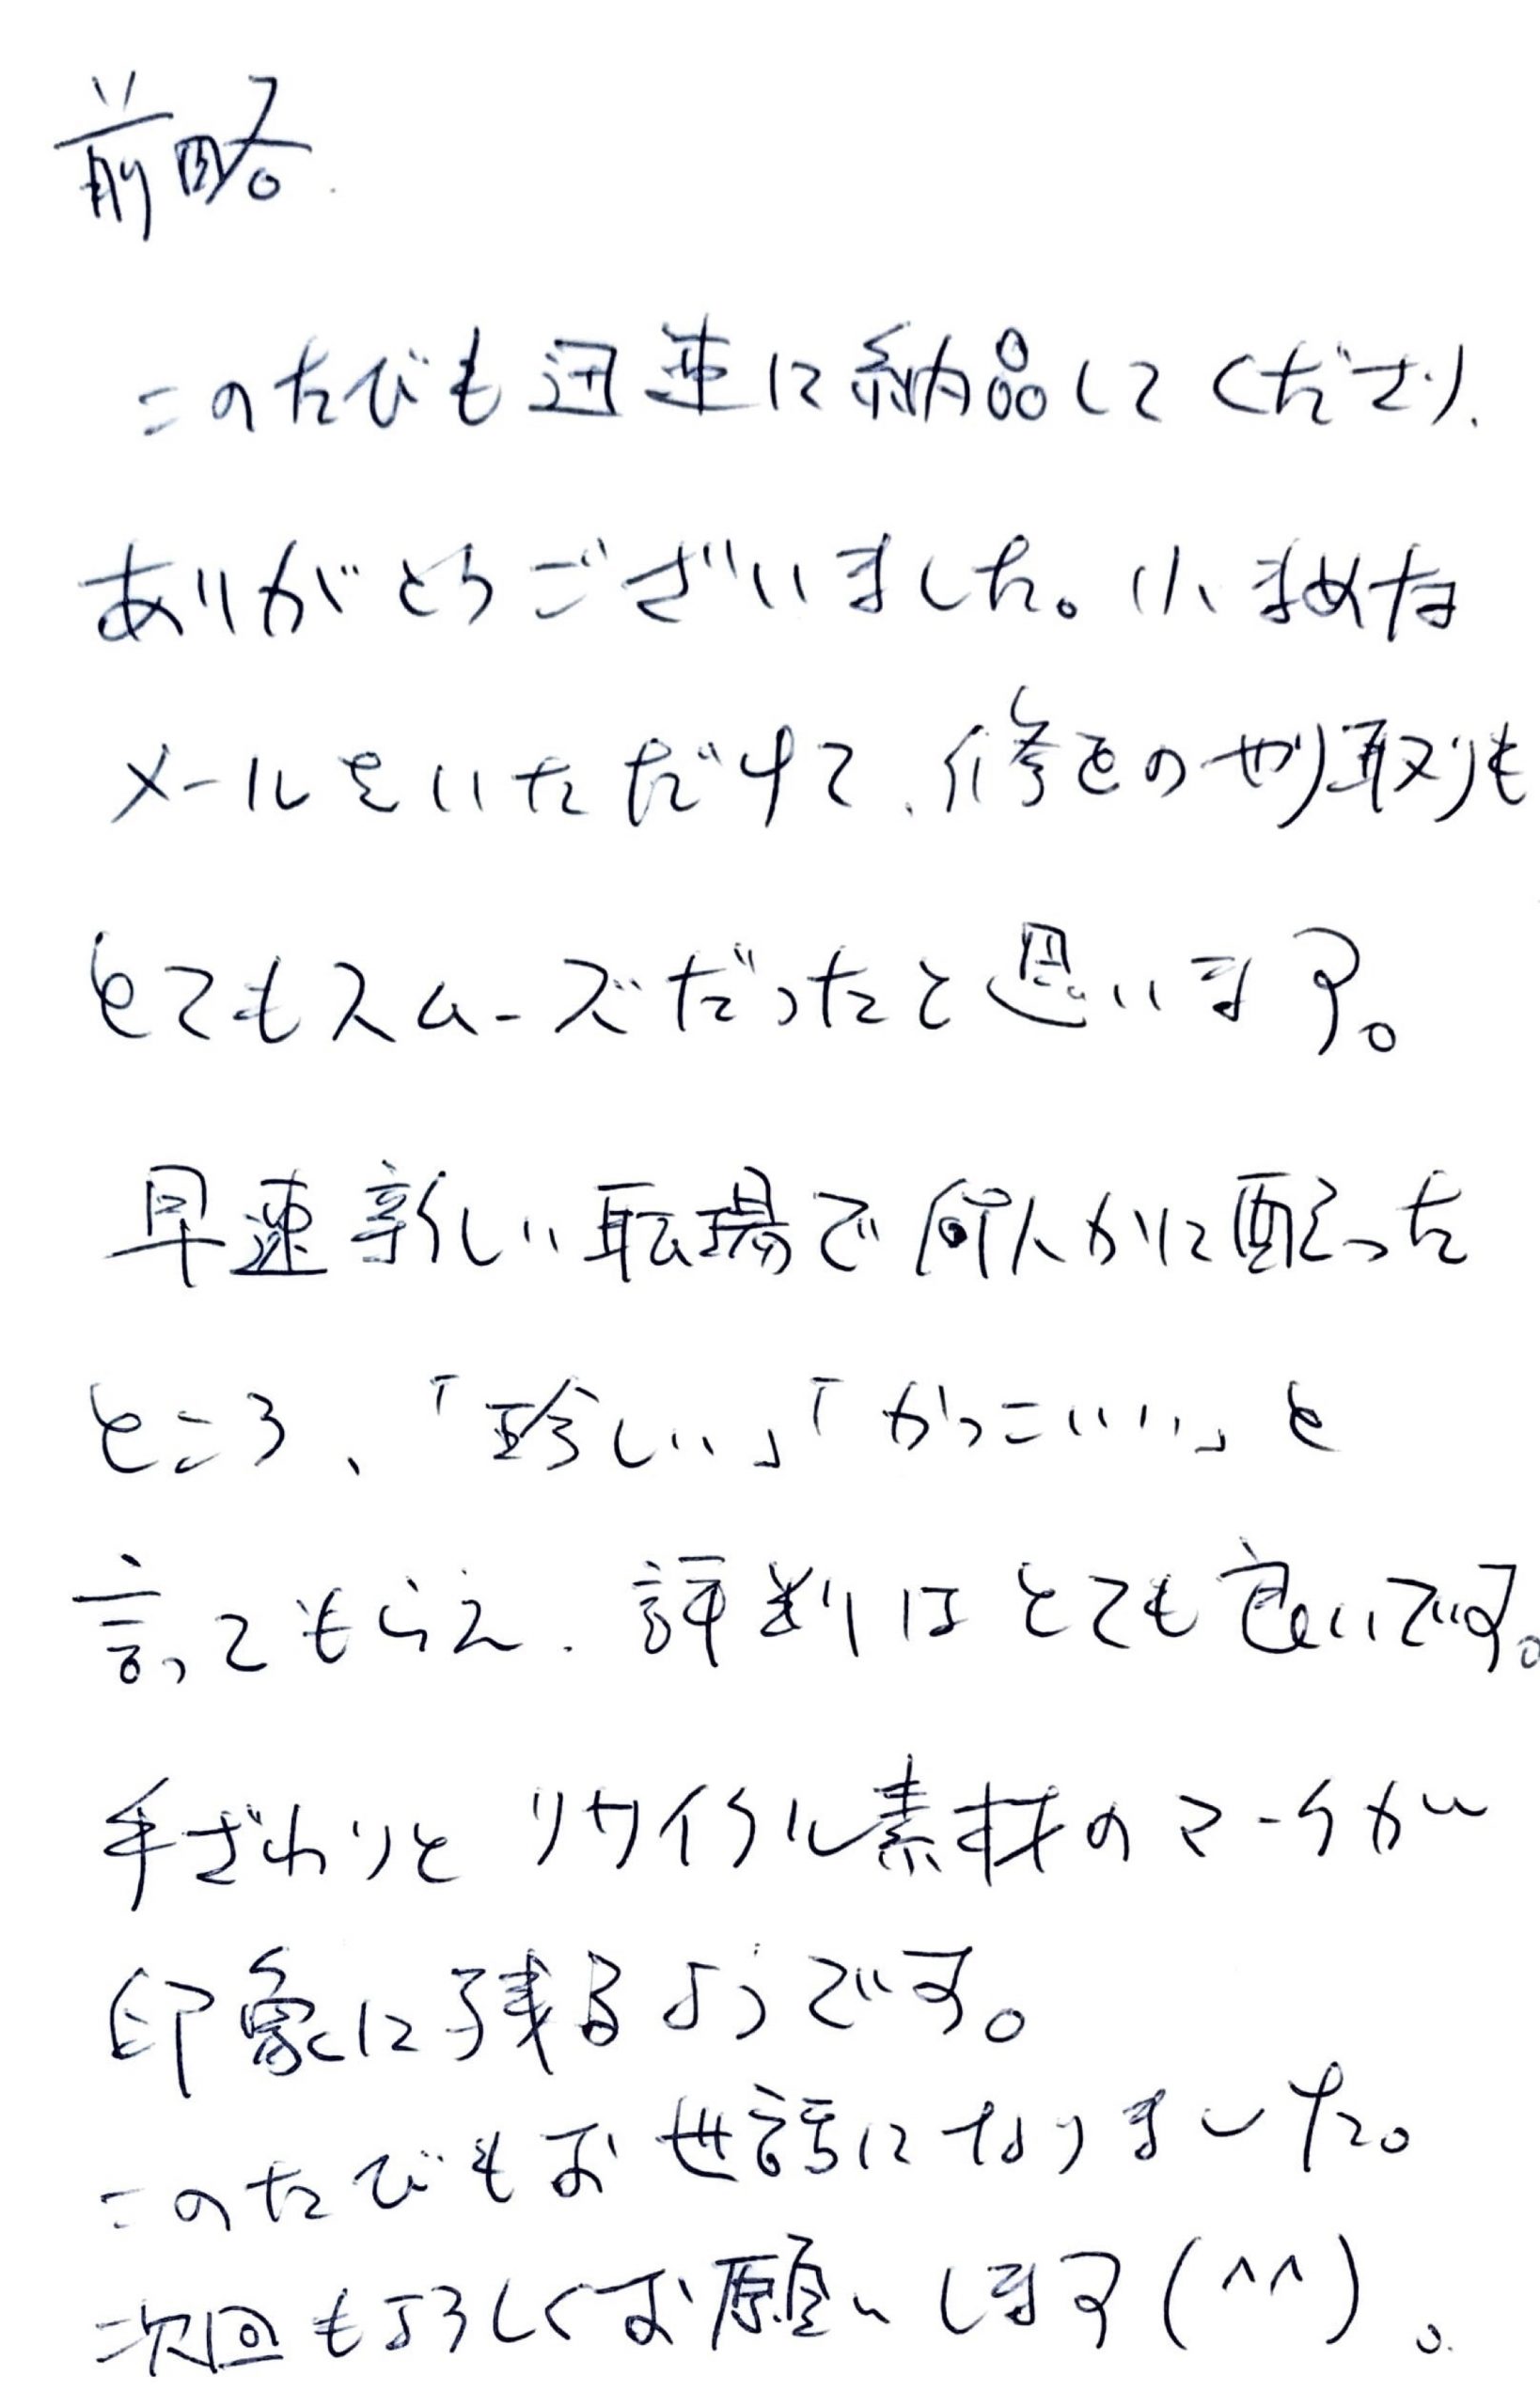 前略
このたびも迅速に納品してくださり、
ありがとうございました。小まめな
メールをいただけて、修正のやり取りも
とてもスムーズだったと思います。
早速新しい職場で何人かに配った
ところ、「珍しい」「かっこいい」と
言ってもらえ、評判はとても良いです。
手ざわりとリサイクル素材のマークが
印象に残るようです。
このたびもお世話になりました。
次回もよろしくお願いします(^^)。